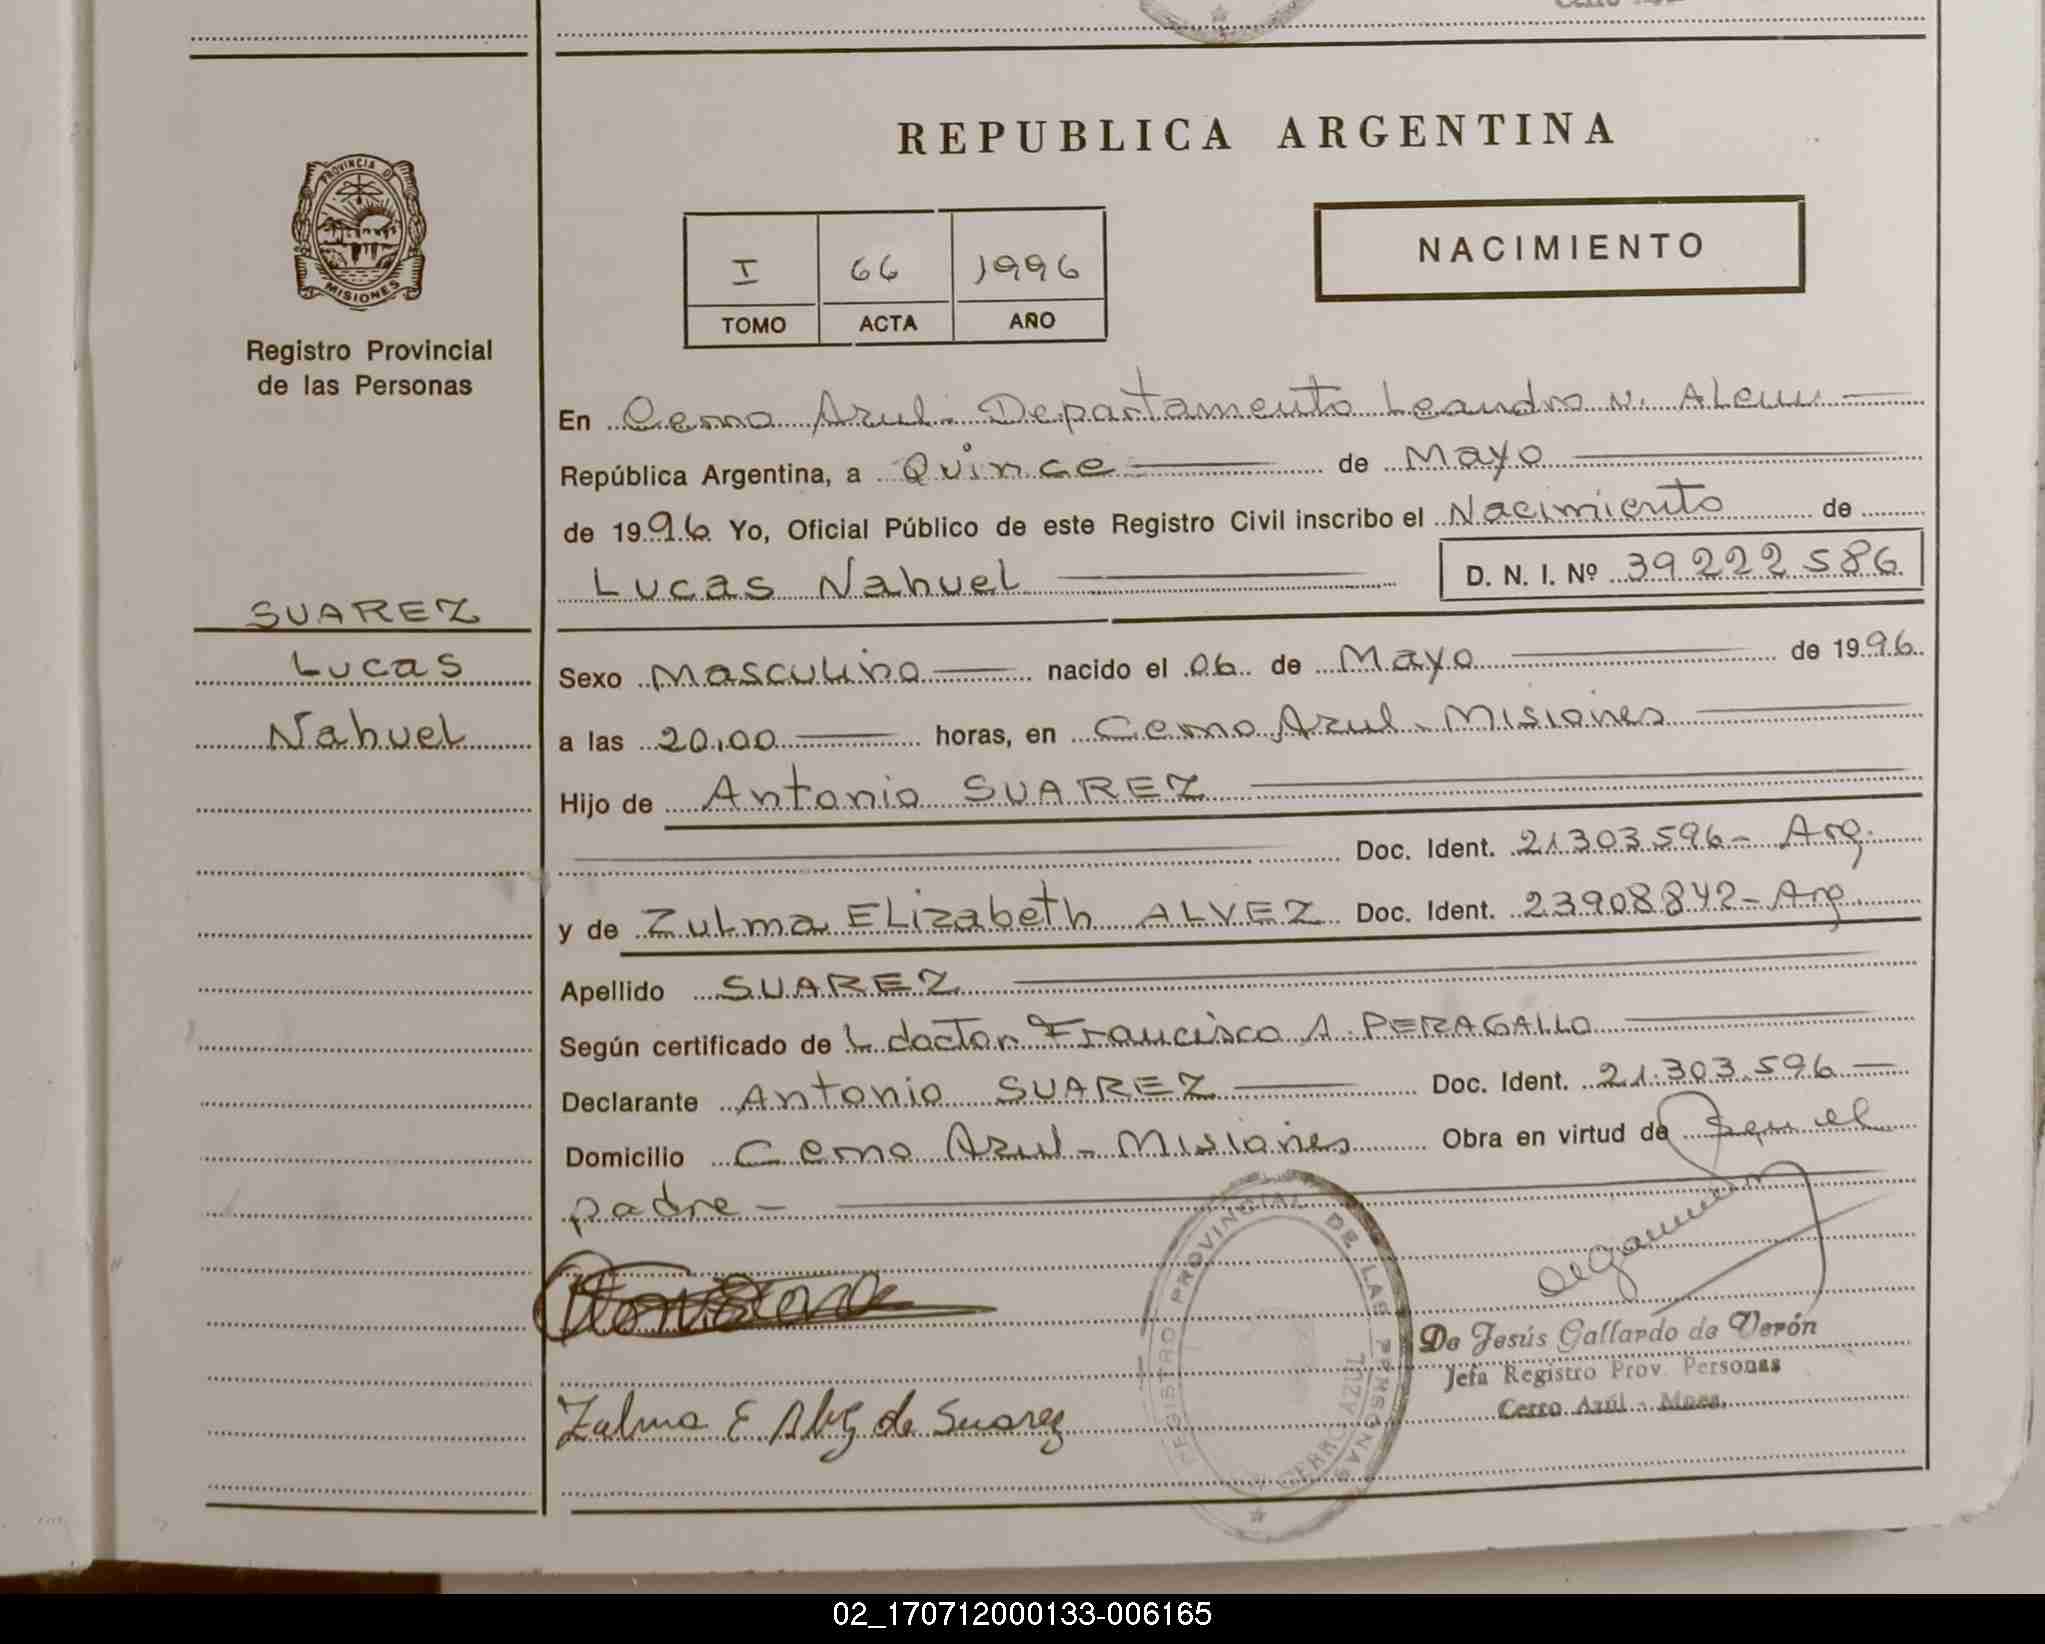 REPUBLICA ARGENTINA
PROVINCIA D MISIONES
Registro Provincial
de las Personas
I 66 1996
TOMO ACTA AÑO
NACIMIENTO
En Cerro Azul - Departamento Leandro N. ALem
República Argentina, a Quince de Mayo
de 1996 Yo, Oficial Público de este Registro Civil inscribo el Nacimiento de
Lucas Nahuel D. N. I. Nº 39222586
SUAREZ
Lucas
Nahuel
Sexo Masculino nacido el 06 de Mayo de 1996.
a las 20,00 horas, en Cerro Azul - Misiones
Hijo de Antonio SUAREZ
Doc. Ident. 21303596 - Arg.
y de Zulma ELizabeth ALVEZ Doc. Ident. 23908842 - Arg.
Apellido SUAREZ
Según certificado de L doctor Francisco A. PERAGALLO
Declarante Antonio SUAREZ Doc. Ident. 21.303.596 -
Domicilio Cerro Azul - Misiones Obra en virtud de
padre -
Zulma E Alvez de Suarez
REGISTRO PROVINCIAL DE LAS PERSONAS
CERRO AZUL
De Jesús Gallardo de Verón
Jefa Registro Prov. Personas
Cerro Azúl - Mnes.
02_170712000133-006165